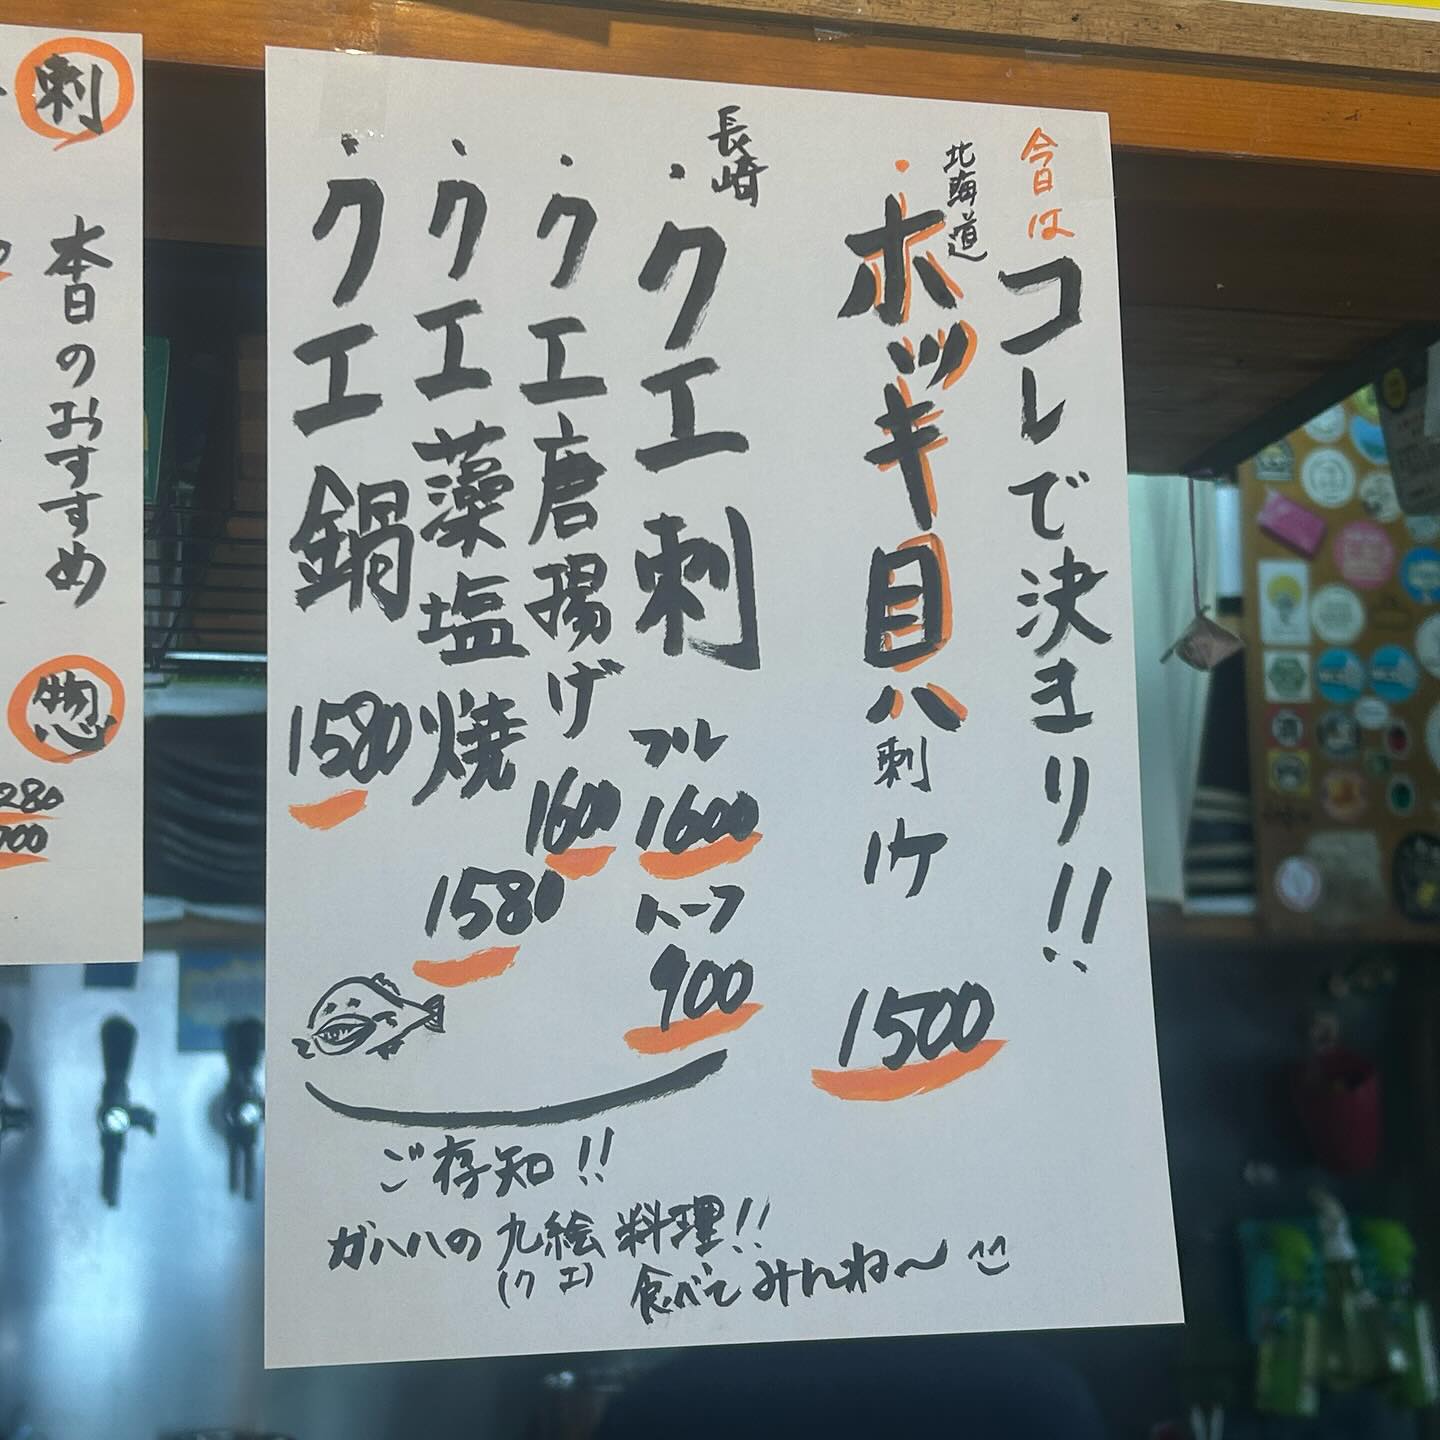 今日はコレで決まり!!
北海道
・ホッキ目八刺 1ケ 1500
長崎
・クエ刺 フル 1600 ハーフ 900
・クエ唐揚げ 1600
・クエ藻塩焼 1580
・クエ鍋 1580
ご存知!!
ガハハの九絵料理!!
(クエ)
食べてみんね〜
刺
本日のおすすめ
惣
280
700